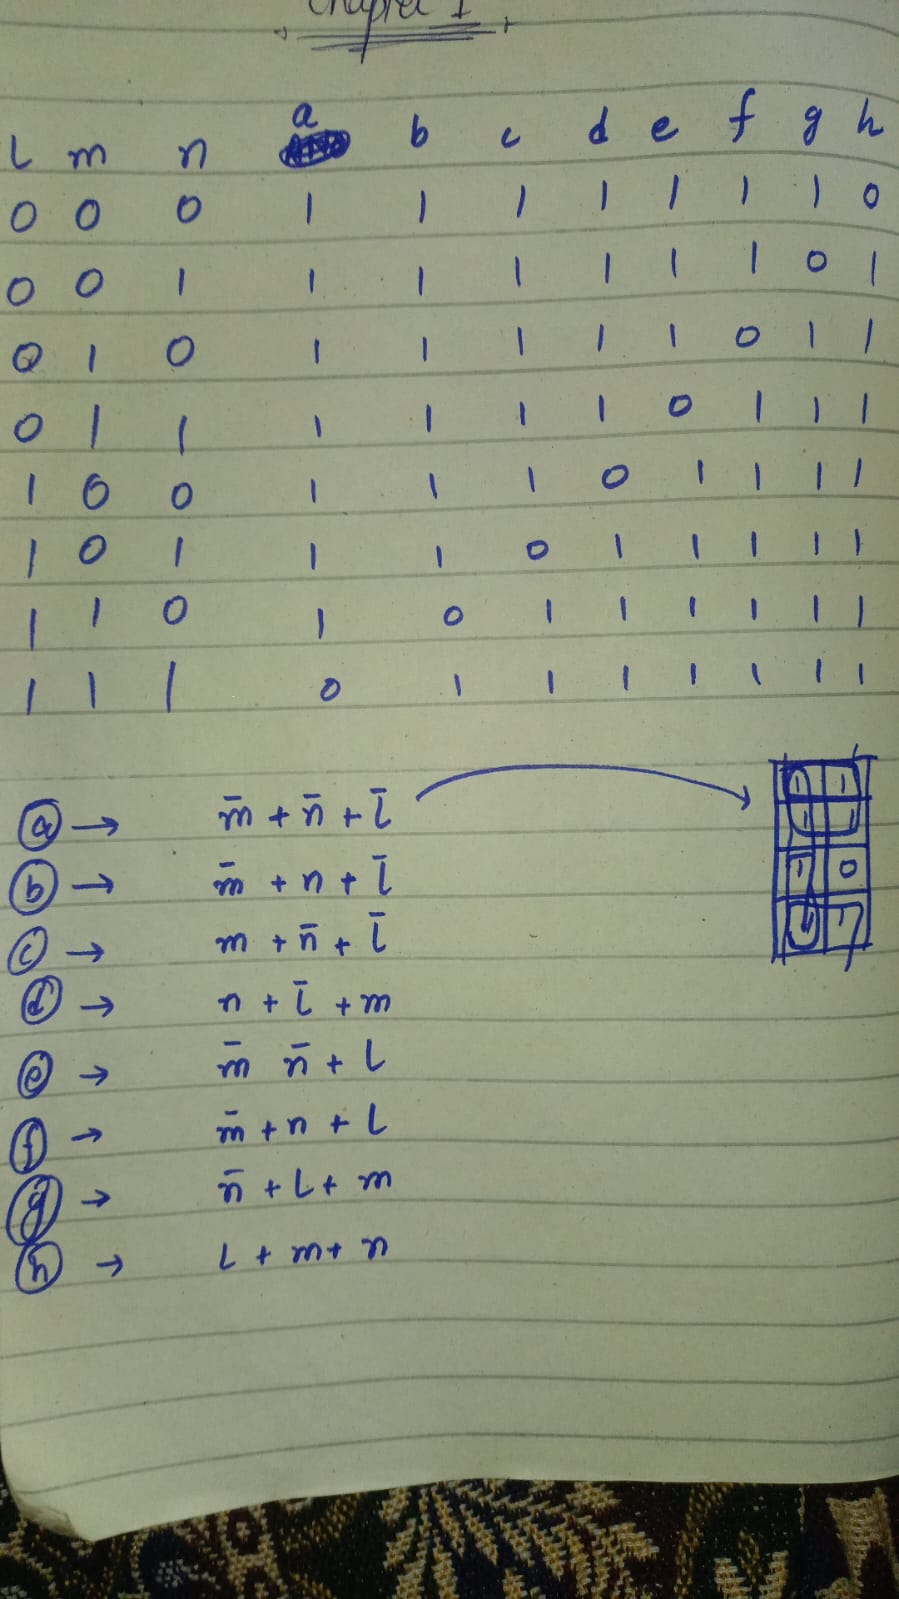 Chapter 1
l m n a b c d e f g h
0 0 0 1 1 1 1 1 1 1 0
0 0 1 1 1 1 1 1 1 0 1
0 1 0 1 1 1 1 1 0 1 1
0 1 1 1 1 1 1 0 1 1 1
1 0 0 1 1 1 0 1 1 1 1
1 0 1 1 1 0 1 1 1 1 1
1 1 0 1 0 1 1 1 1 1 1
1 1 1 0 1 1 1 1 1 1 1
a → m̄ + n̄ + l̄
b → m̄ + n + l̄
c → m + n̄ + l̄
d → n + l̄ + m
e → m̄ n̄ + l
f → m̄ + n + l
g → n̄ + l + m
h → l + m + n
1 1
1 1
1 0
1 1